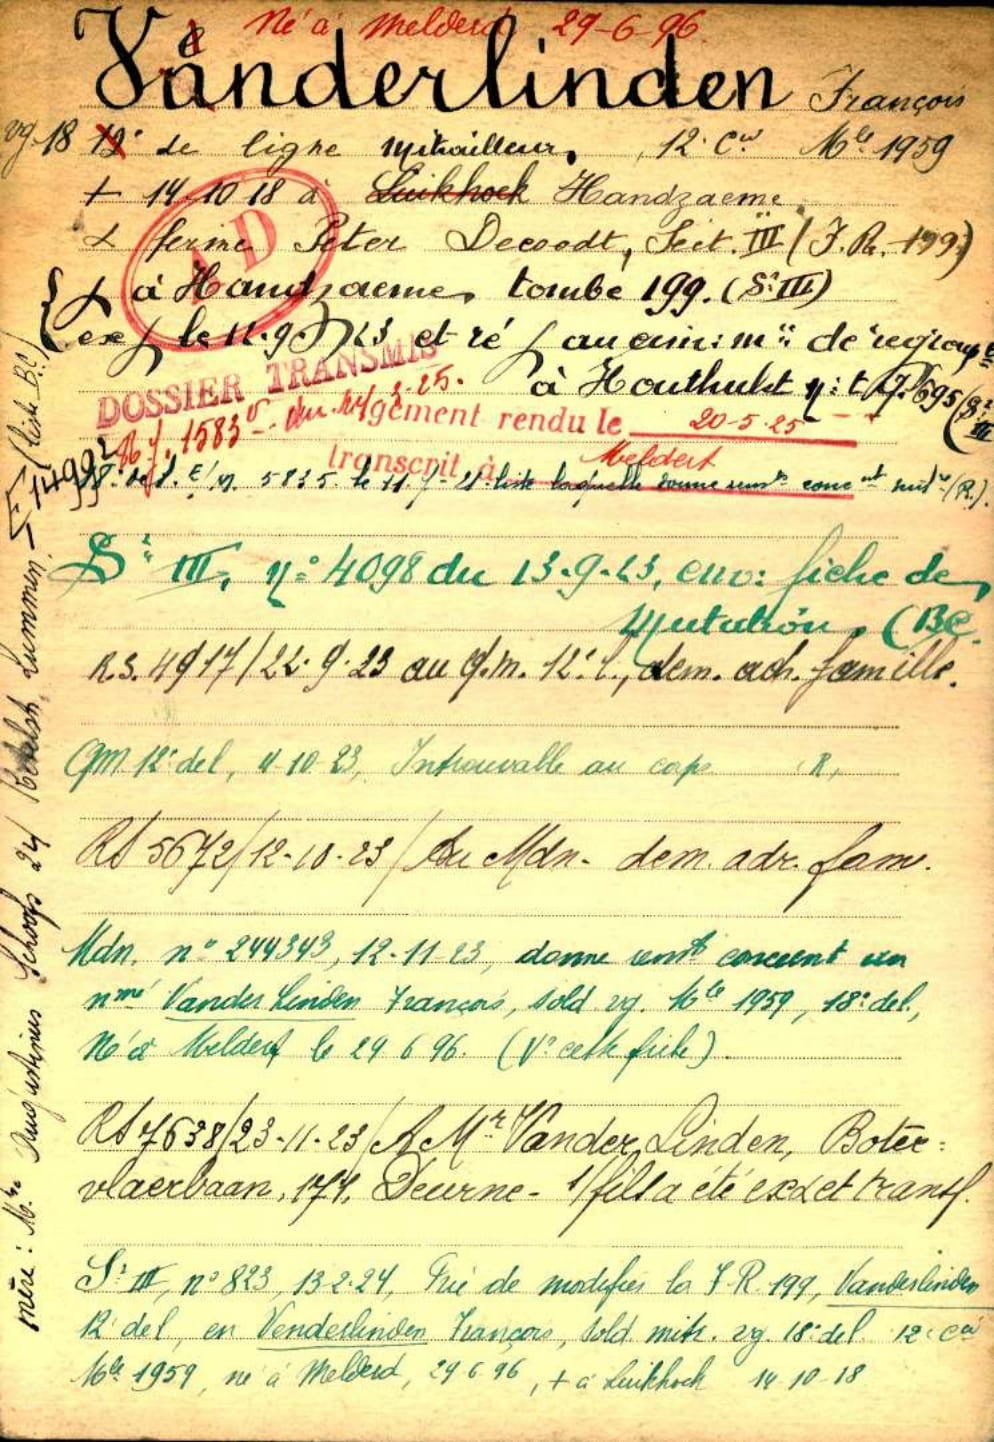 Né à Meldert 29-6-96.
Vanderlinden François
vg. 18 12e de ligne Mitrailleur, 12e Cie Mle 1959
+ 14-10-18 à Luikhoek Handzaeme
ferme Peter Decoodt, Sect. III (F.R. 199)
à Handzaeme, tombe 199. (S: III)
(ex le 11-9-23 et ré au cim: m: de regroup
à Houthulst n: t. 695 (S: III
A D
DOSSIER TRANSMIS
1583 du 14/3-25.
Jugement rendu le 20-5-25
transcrit à Meldert
5835 le 11-7- liste laquelle donne
S: III, n° 4098 du 13-9-23, env: fiche de
Mutation, (BC.
R.S. 4917/22-9-23 au q.m. 12e l., dem. adr. famille.
QM 12e del, 4-10-23, Introuvable au corps R,
RS 5672/12-10-23/ Au Mdn- dem. adr. fam.
Mdn. n° 244343, 12-11-23, donne rensts concernt un
nmé Vander Linden François, sold. vg. Mle 1959, 18e del,
Né à Meldert le 29 6 96. (Vr cette fiche).
RS 7638/23-11-23/ A Mr Vander Linden, Boter-
vlaerbaan, 177, Deurne- 1/fils a été ex et transf.
S: III, n° 823, 13-2-24, Prié de modifier la F.R. 199, Vanderlinden
12 del, en Venderlinden François, sold. mitr. vg. 18e del 12e Cie
Mle 1959, né à Meldert, 29 6 96, + à Luikhoek 14-10-18
mère: Augustinus Schoofs 24/ Lummen. 14992 (liste B.C.)